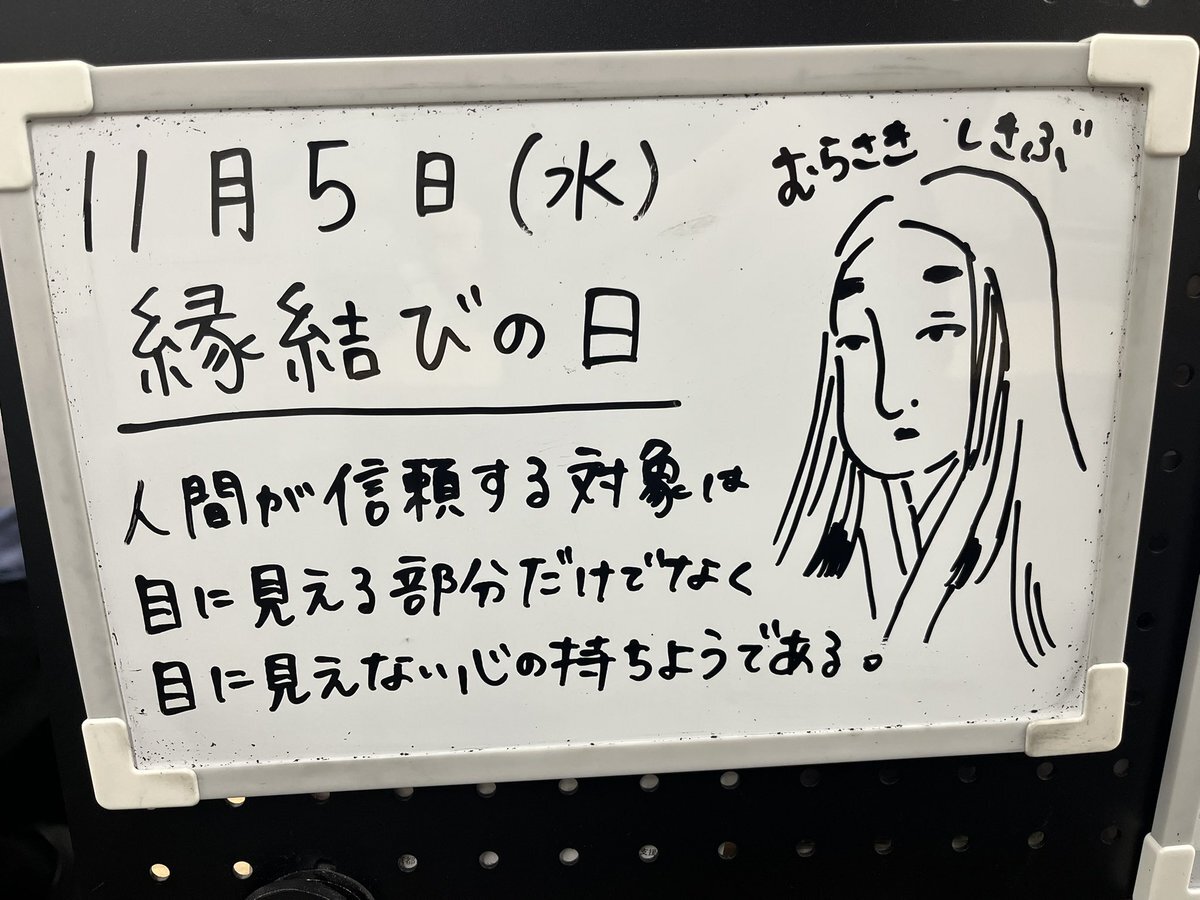 11月5日(水)
むらさきしきぶ
縁結びの日
人間が信頼する対象は
目に見える部分だけでなく
目に見えない心の持ちようである。